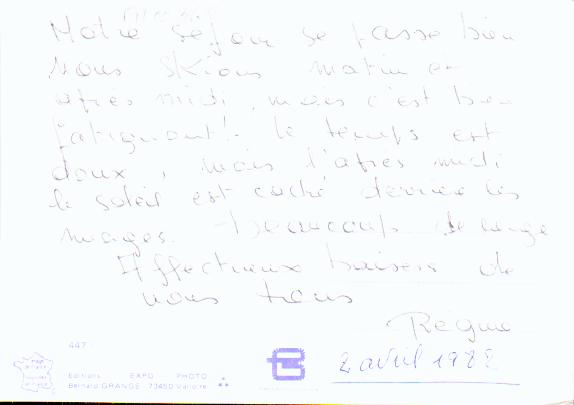 Notre séjour se passe bien
Nous skions matin et
après midi, mais c'est bien
fatiguant! le temps est
doux, mais l'après midi
le soleil est caché derrière les
nuages. beaucoup de neige
Affectueux baisers de
nous tous
Régine
2 avril 19
447
Editions EXPO PHOTO
Bernard GRANGE - 73450 Valloire